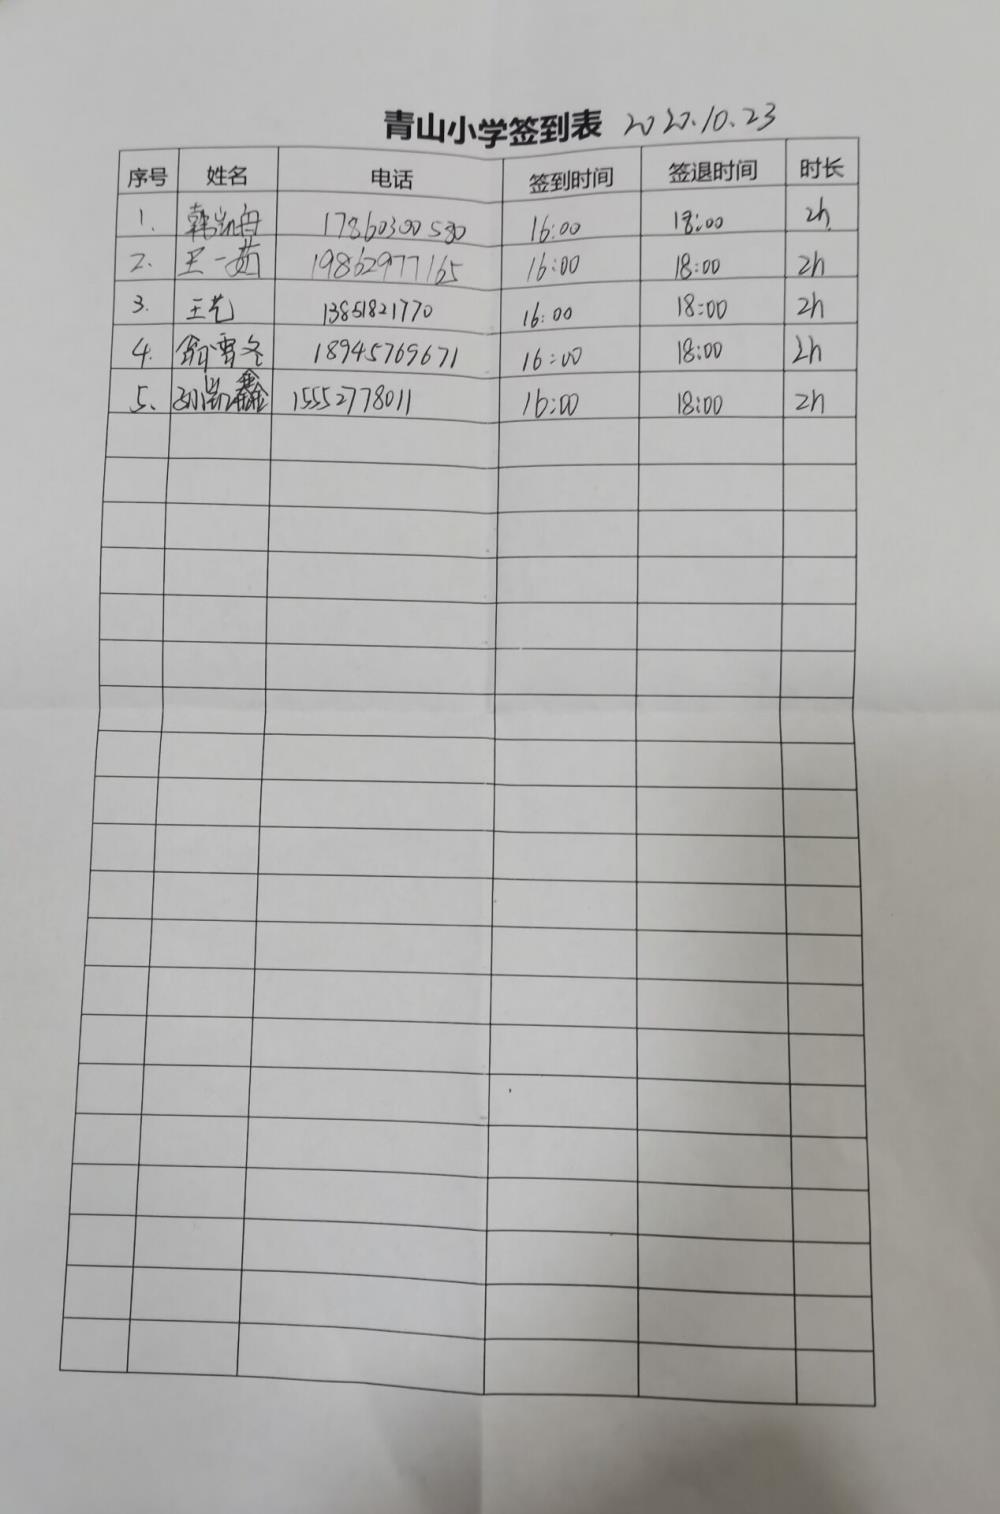 青山小学签到表 2020.10.23
序号 姓名 电话 签到时间 签退时间 时长
1. 韩凯舟 17860300580 16:00 18:00 2h
2. 王一茹 19862977165 16:00 18:00 2h
3. 王艺 13851821770 16:00 18:00 2h
4. 雪冬 18945769671 16:00 18:00 2h
5. 凯鑫 15552778011 16:00 18:00 2h